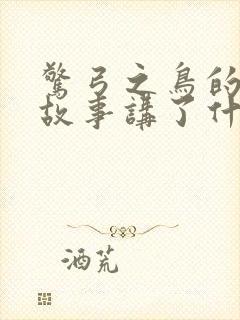 驚弓之鳥的
故事講了什
酒荒